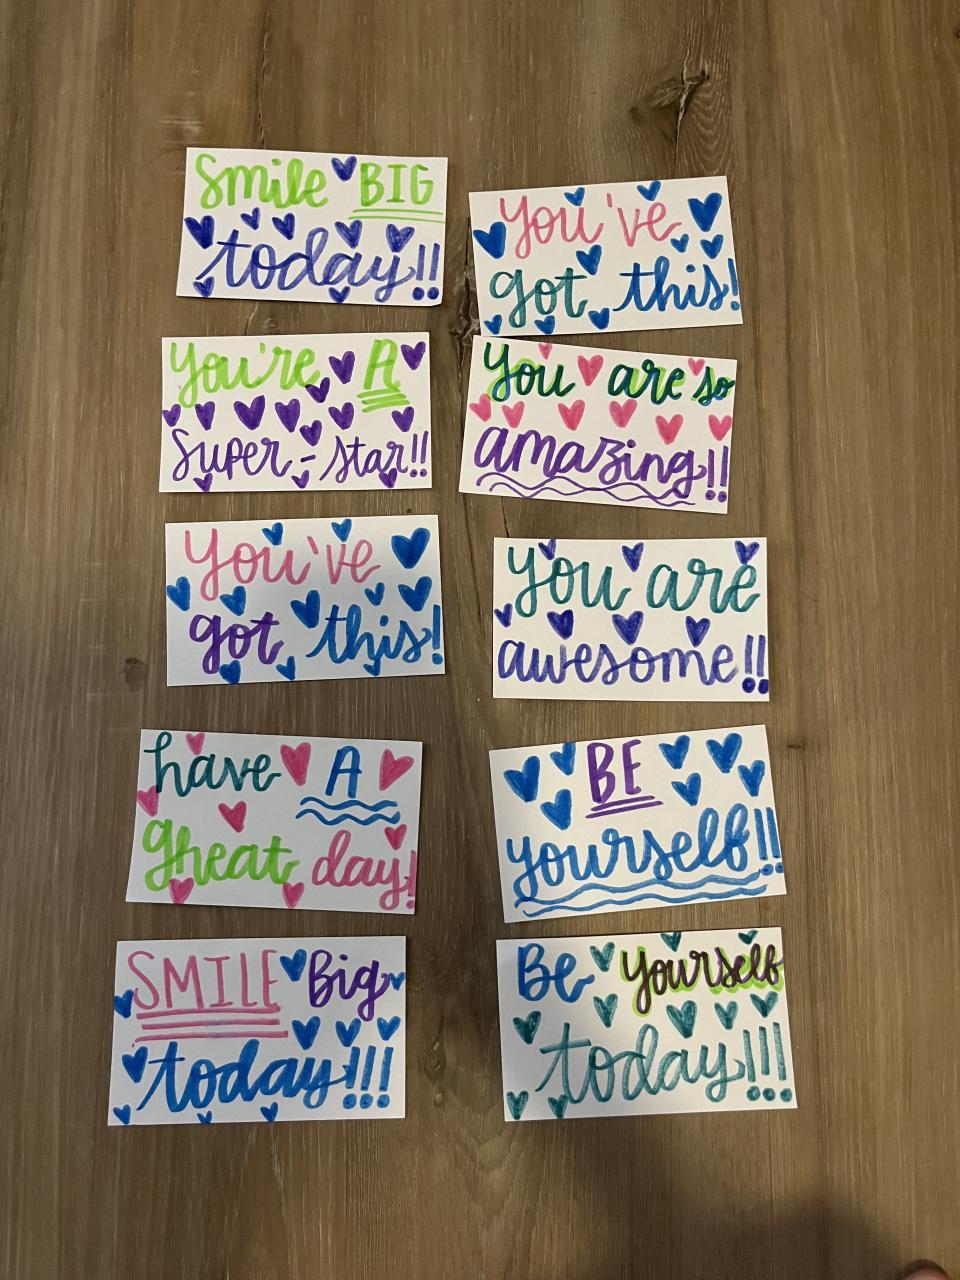 Smile BIG
today!!
You've
got this!
You're A
Super-star!!
You are so
amazing!!
You've
got this!
You are
awesome!!
have A
great day!
BE
yourself!!
SMILE Big
today!!!
Be yourself
today!!!